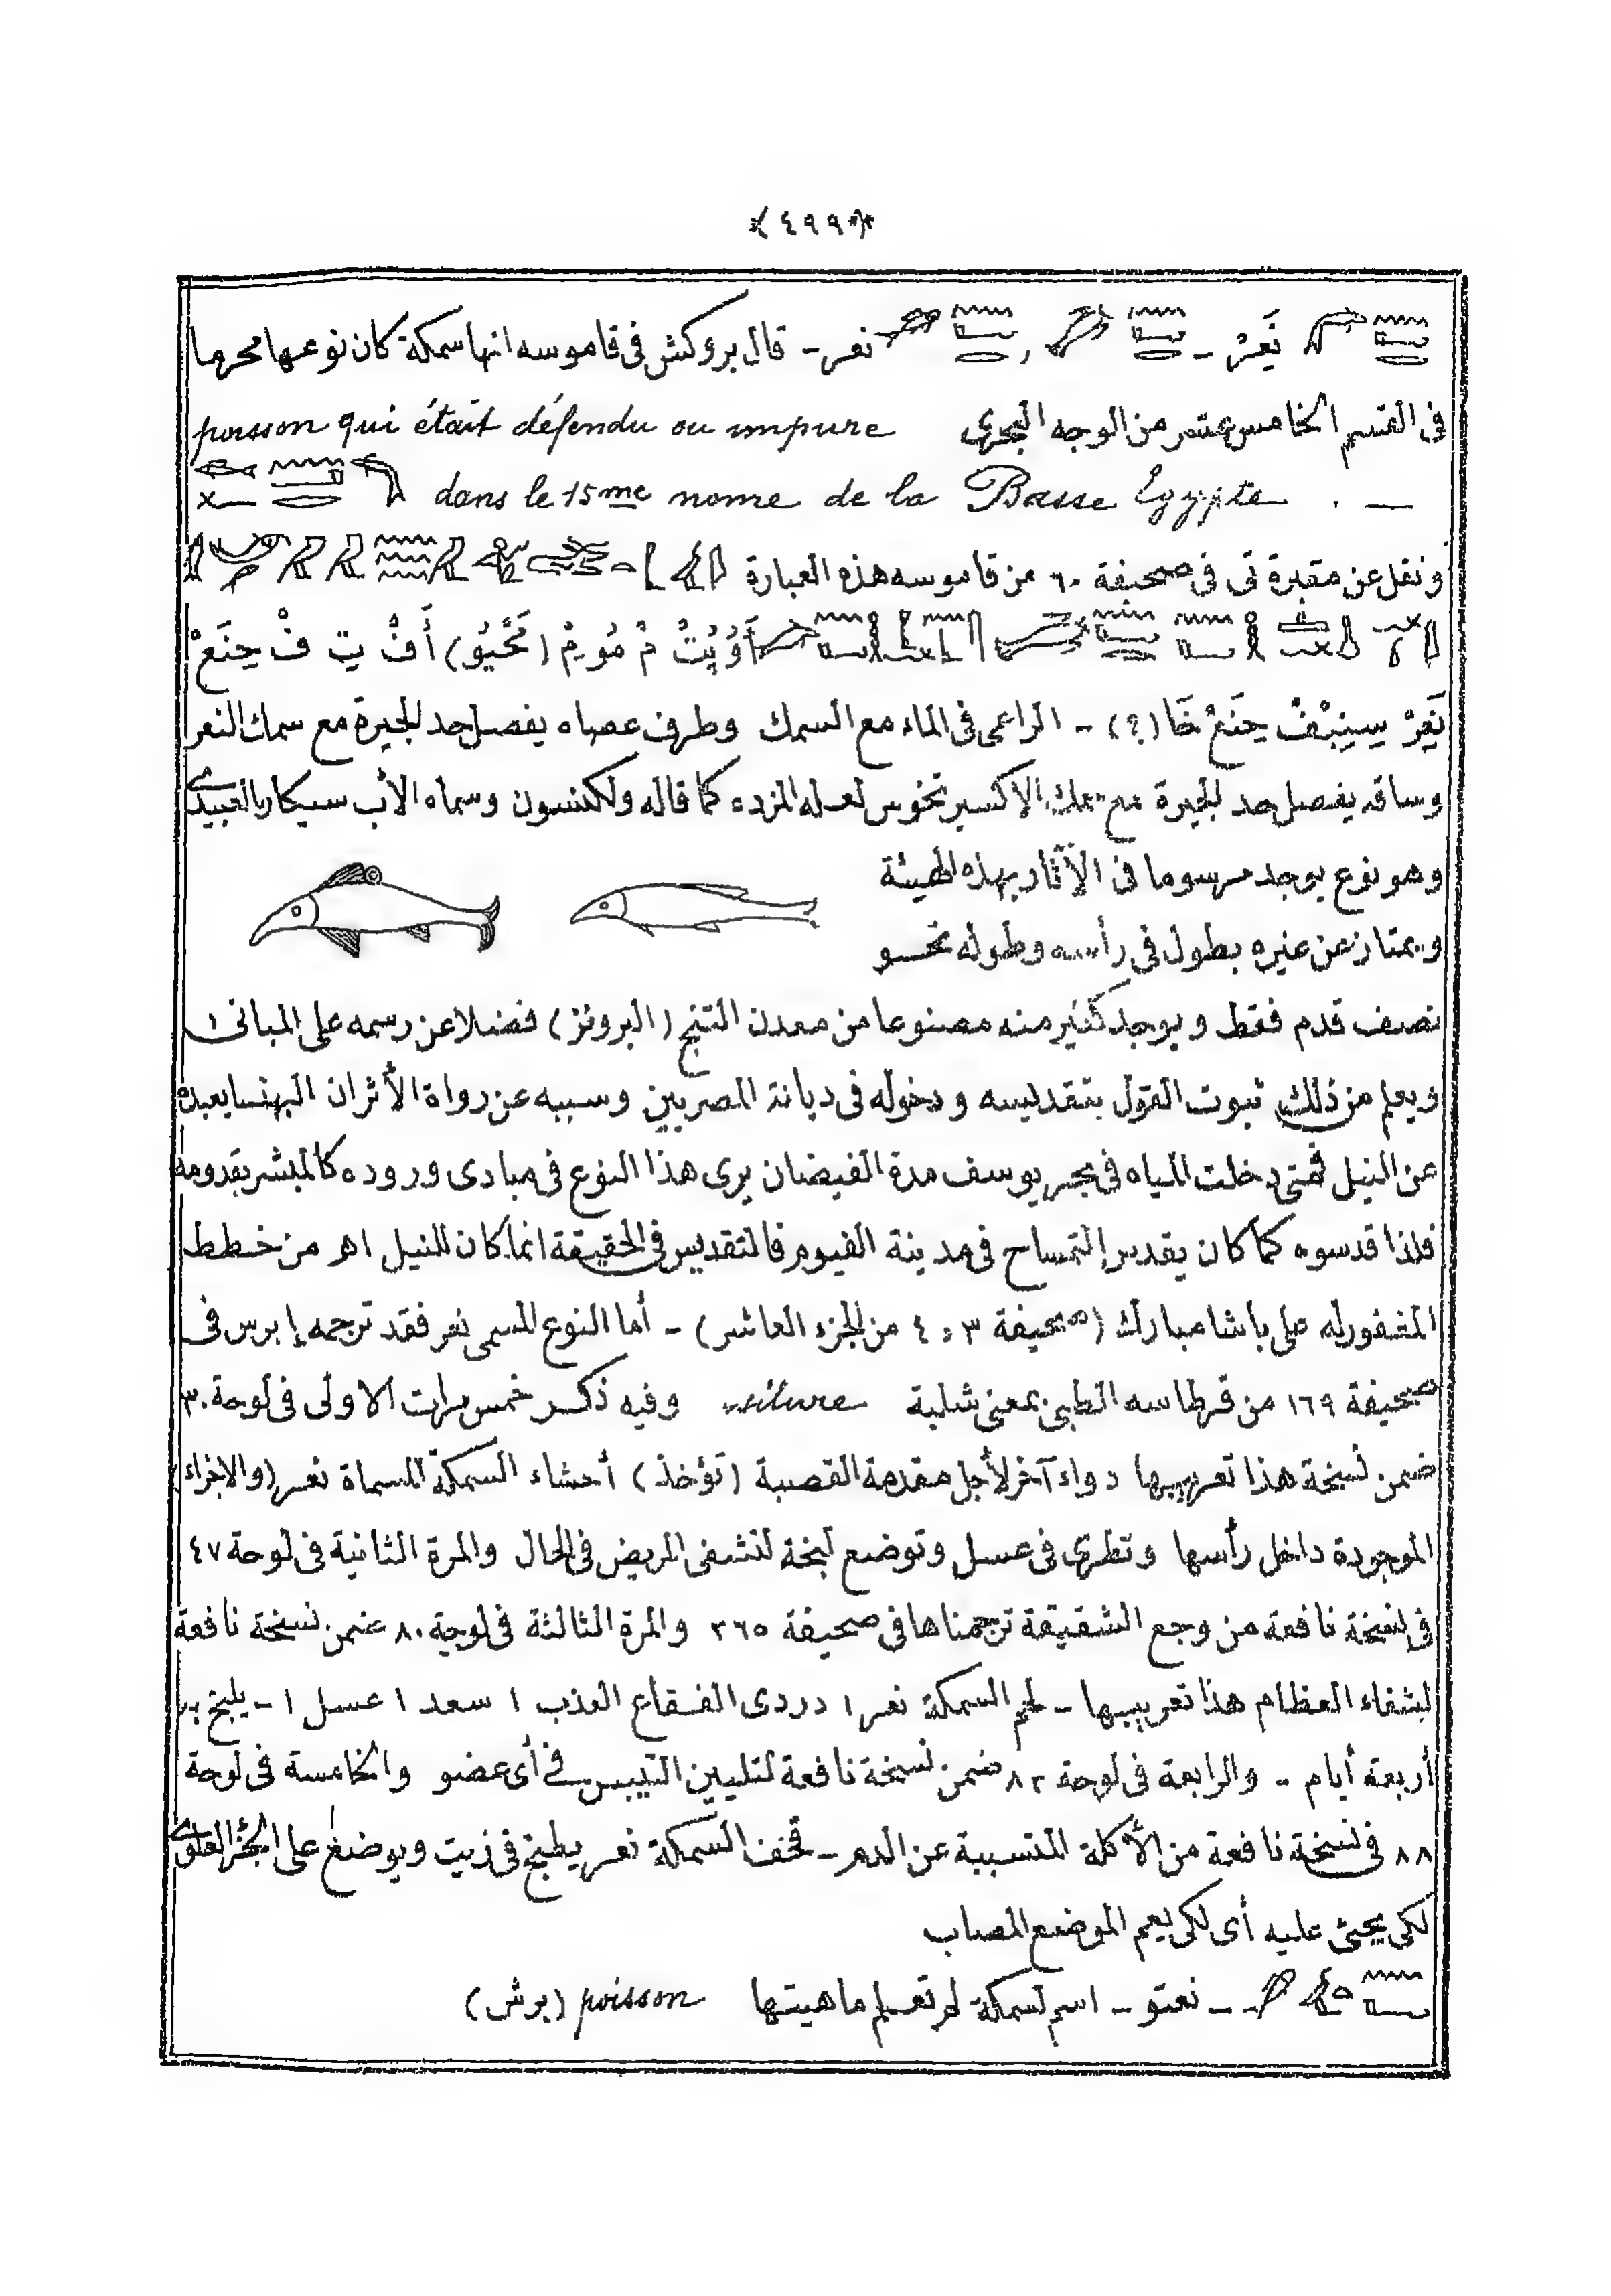 ٤٩٩
نَعِرْ - ، نعر - قال بروكش فى قاموسه انها سمكة كان نوعها محرما
فى القسم الخامس عشر من الوجه البحرى poisson qui était défendu ou impure
dans le 15me nome de la Basse Egypte . —
ونقل عن مقبرة تى فى صحيفة ٦٠ من قاموسه هذه العبارة
مْ مُو مْ (مَحْيُو) أَفْ يتِ فْ حِنَعْ
نَعِرْ حِنَعْ خَا (؟) - الراعى فى الماء مع السمك وطرف عصاه يفصل حد الجيرة مع سمك النعر
وساقه يفصل حد الجيرة مع سمك الاكسيرنخوس لعله المزده كما قاله ولكنسون وسماه الأب سيكار بالقبيدى
وهو نوع يوجد مرسوما فى الآثار بهذه الهيئة
ويمتاز عن غيره بطول فى رأسه وطوله نحو
نصف قدم فقط ويوجد كثير منه مصنوعا من معدن التنج (البرونز) فضلا عن رسمه على المبانى
ويعلم من ذلك ثبوت القول بتقديسه ودخوله فى ديانة المصريين وسببه عن رواة الأثر ان البهنسا بعيدة
عن النيل فمتى دخلت المياه فى بحر يوسف مدة الفيضان يرى هذا النوع فى مبادى وروده كالمبشر بقدومه
فلذا قدسوه كما كان يقدس التمساح فى مدينة الفيوم فالتقديس فى الحقيقة انما كان للنيل اهـ من خطط
المغفور له على باشا مبارك (صحيفة ٣ ، ٤ من الجزء العاشر) - أما النوع المسمى نعر فقد ترجمه إبرس فى
صحيفة ١٦٩ من قرطاسه الطبى بمعنى شلبة silure وفيه ذكر خمس مرات الاولى فى لوحة ٣٠
ضمن نسخة هذا تعريبها دواء آخر لأجل مقدمة القصبة (تؤخذ) أحشاء السمكة المسماة نعر (والاجزاء)
الموجودة داخل رأسها وتطرى فى عسل وتوضع لبخة لتشفى المريض فى الحال والمرة الثانية فى لوحة ٤٧
فى نسخة نافعة من وجع الشقيقة ترجمناها فى صحيفة ٣٦٥ والمرة الثالثة فى لوحة ٨٠ ضمن نسخة نافعة
لشفاء العظام هذا تعريبها - لحم السمكة نعر ١ دردى الفقاع العذب ١ سعد ١ عسل ١ - يلبخ به
أربعة أيام - والرابعة فى لوحة ٨٢ ضمن نسخة نافعة لتليين التيبس فى أى عضو والخامسة فى لوحة
٨٨ فى نسخة نافعة من الأكلة المتسببة عن الدم - قحف السمكة نعر يطبخ فى زيت ويوضع على
لكى يحيئ عليه أى لكى يعم الموضع المصاب
- نعتو - اسم لسمكة لم تعلم ماهيتها poisson (برش)